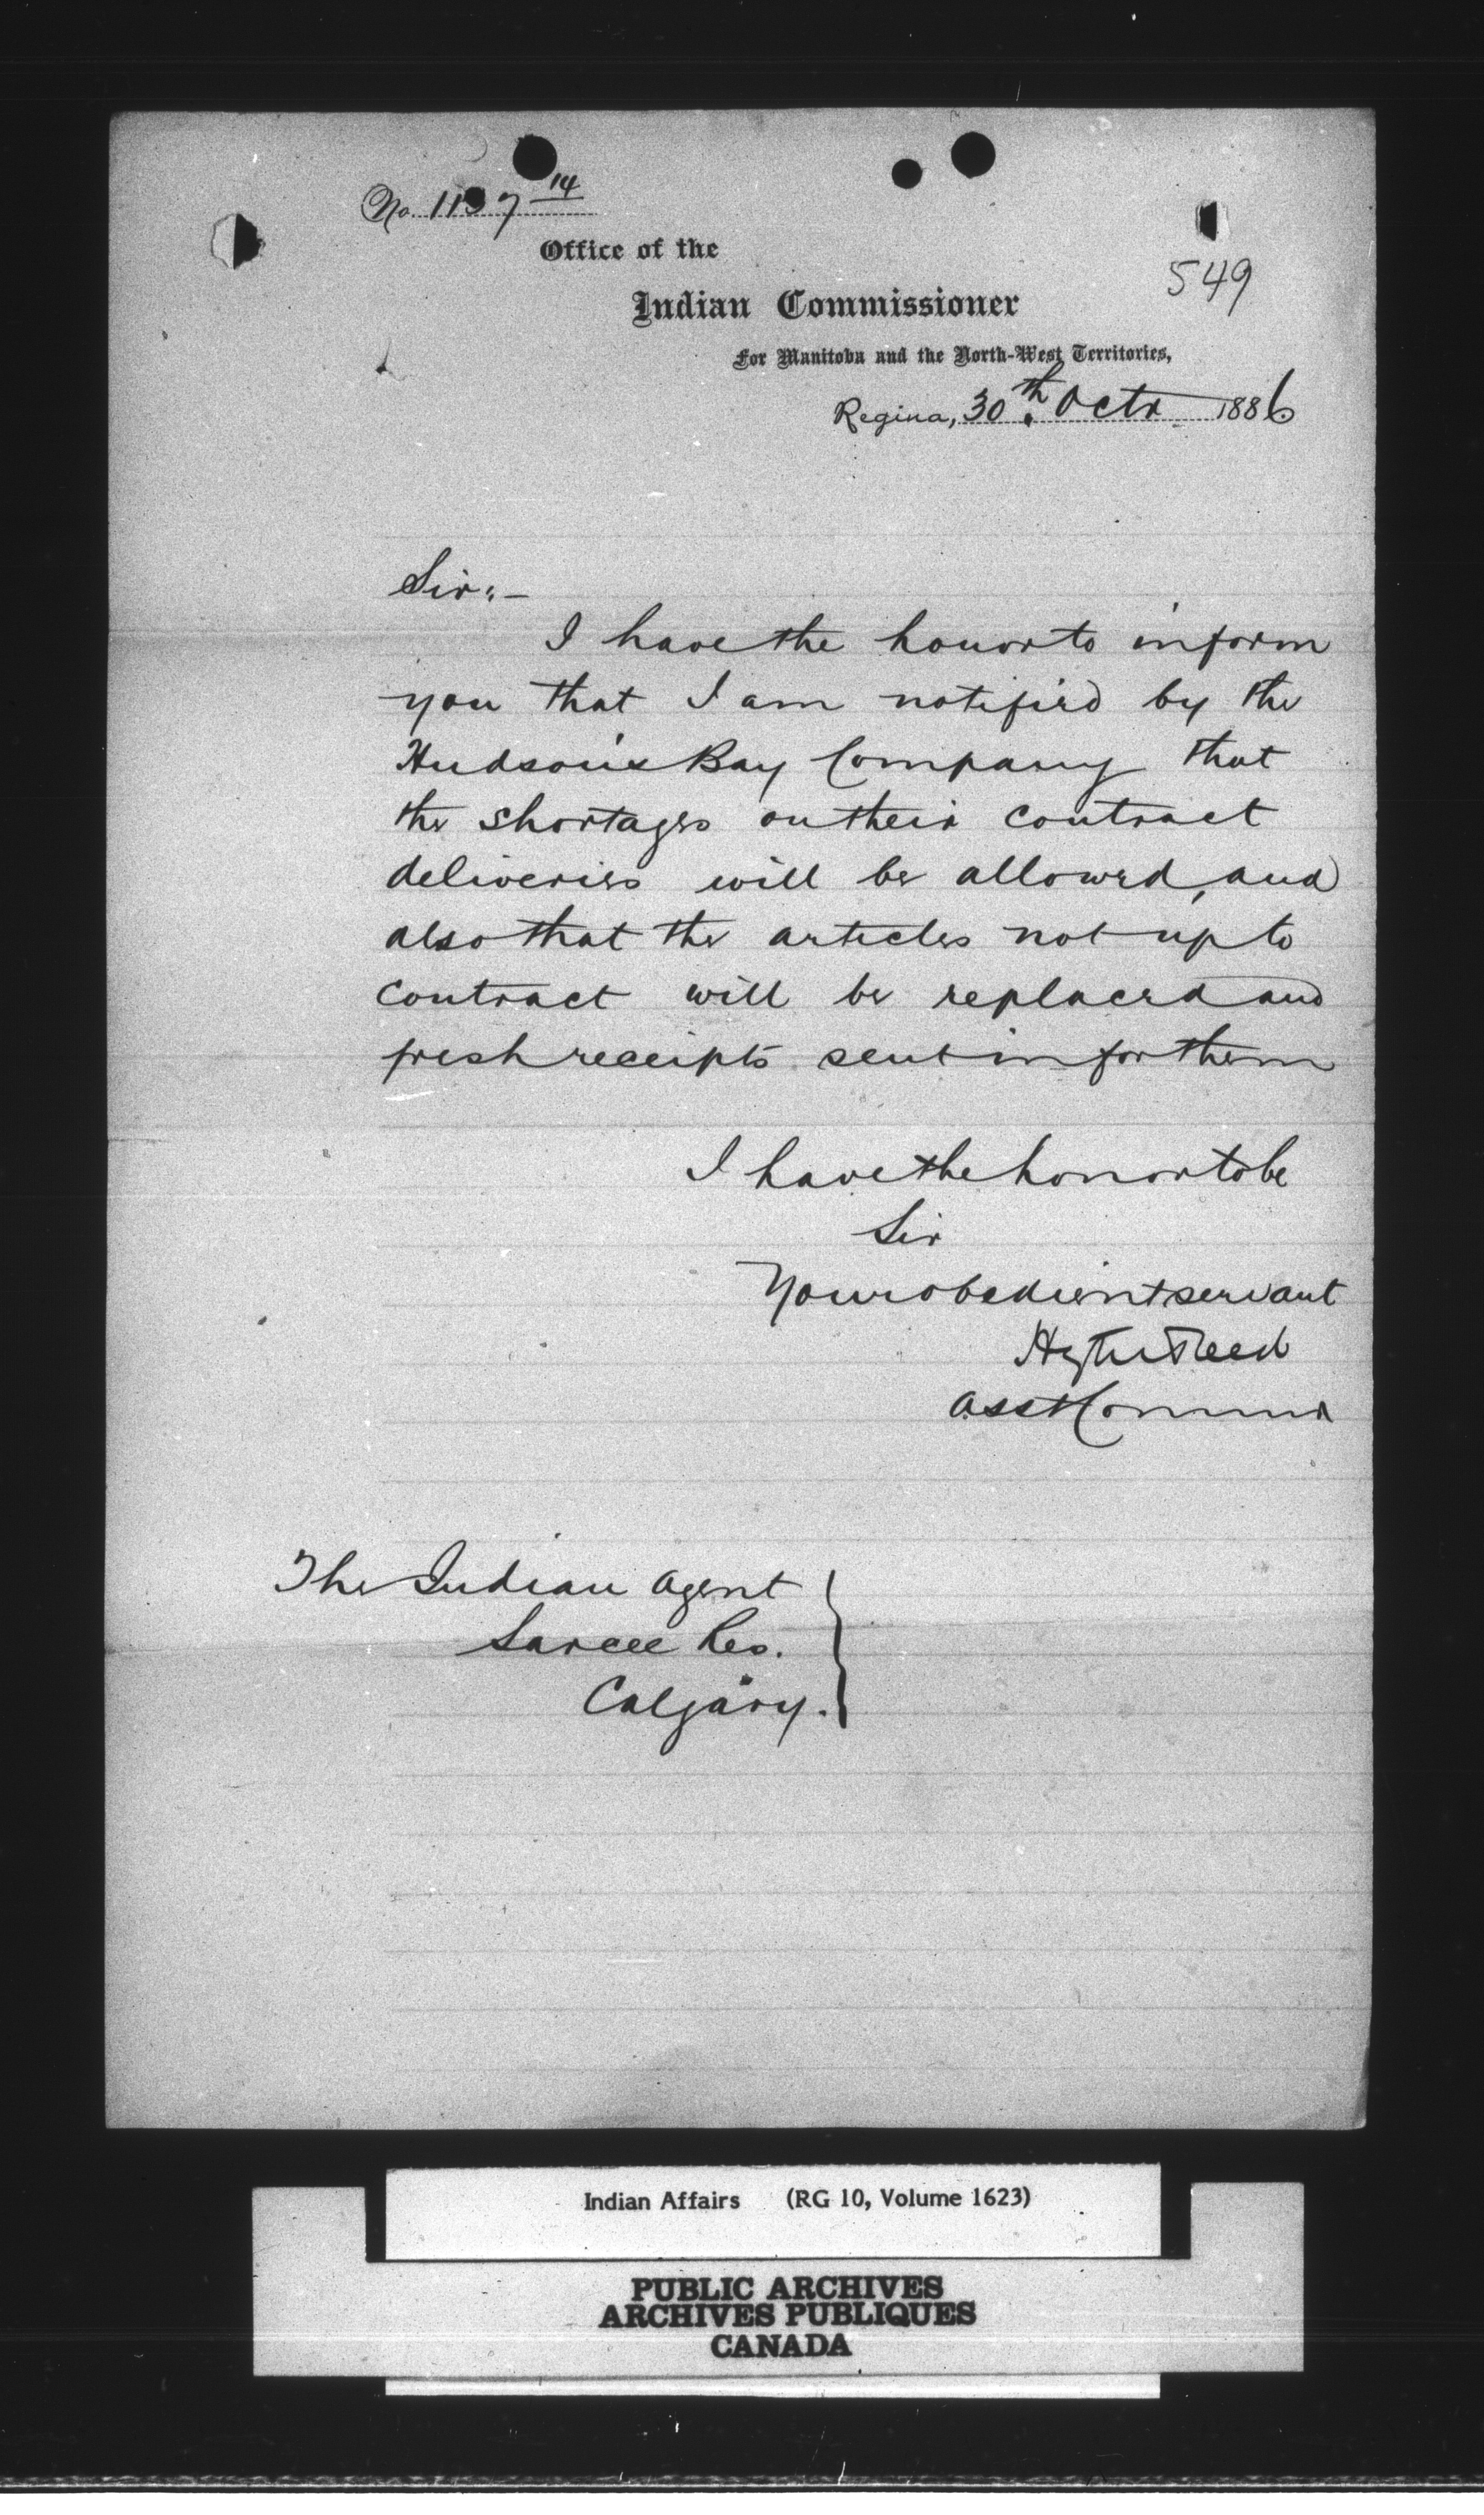 No. 1137 14
Office of the
549
Indian Commissioner
For Manitoba and the North-West Territories,
Regina, 30th Octr 1886
Sir:-
I have the honor to inform
you that I am notified by the
Hudson's Bay Company that
the shortages on their contract
deliveries will be allowed, and
also that the articles not up to
contract will be replaced and
fresh receipts sent in for them
I have the honor to be
Sir
Your obedient servant
Hayter Reed
Asst Commr
The Indian Agent
Sarcee Res.
Calgary.
Indian Affairs (RG 10, Volume 1623)
PUBLIC ARCHIVES
ARCHIVES PUBLIQUES
CANADA